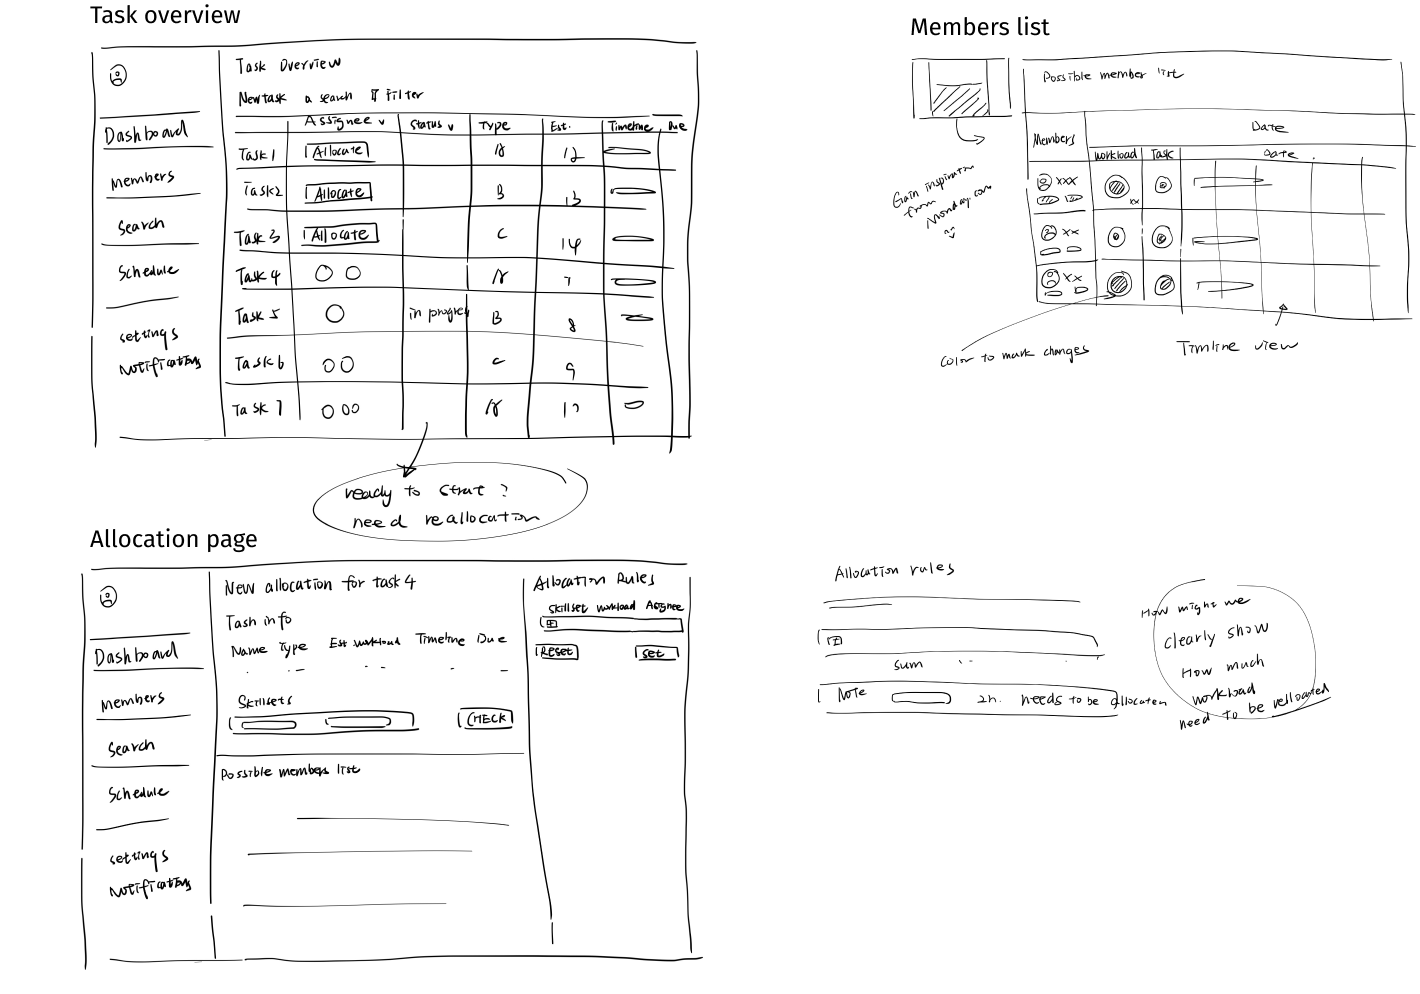 Task overview
Task Overview
New task a search Filter
Dashboard
Members
Search
Schedule
settings
Notifications
Assignee v Status v Type Est. Timeline Due
Task 1 Allocate A 12
Task2 Allocate B 13
Task 3 Allocate C 14
Task 4 A 7
Task 5 in progres B 8
Task 6 C 9
Task 7 A
ready to strat ?
need reallocation
Members list
Possible member list
Members
Date
Workload Task Date .
xxx
xx
xx
xx
Gain inspiration
from
Monday.com
Color to mark changes
Timline view
Allocation page
Dashboard
Members
Search
Schedule
settings
Notifications
New allocation for task 4
Task info
Name Type Est workload Timeline Due
Skillsets
CHECK
Possible members list
Allocation Rules
Skillset Workload Assignee
Reset set
Allocation rules
sum
Note 2h. needs to be allocaten
How might we
clearly show
How much
workload
need to be rellocated